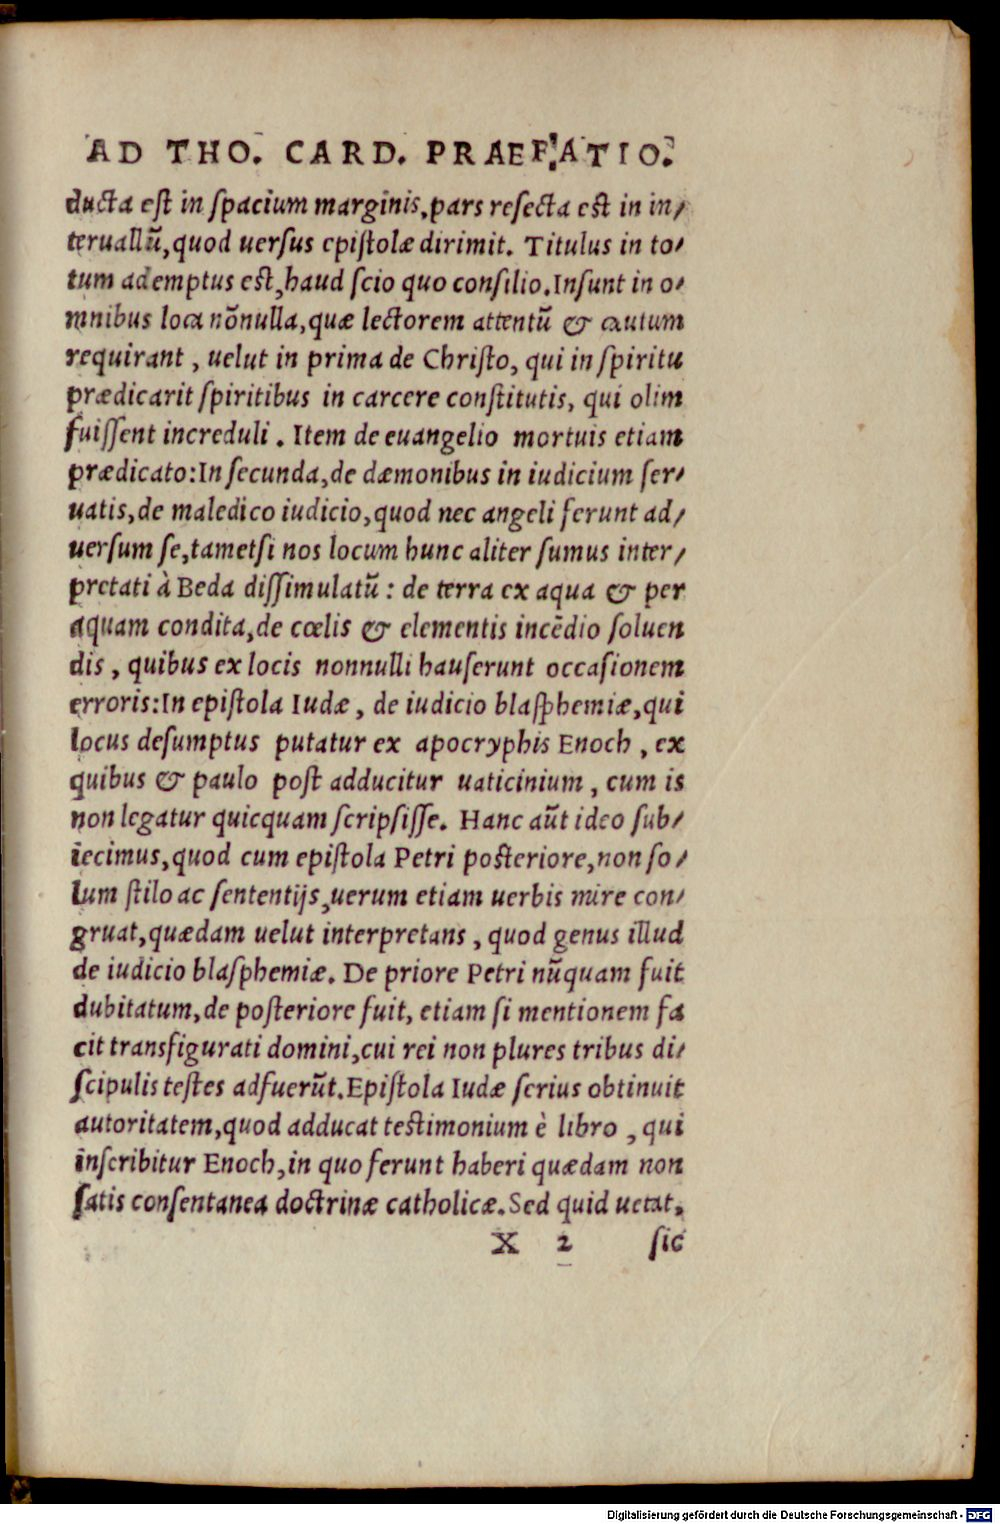 AD THO. CARD. PRAEFATIO.
ducta est in ſpacium marginis, pars reſecta est in in-
teruallũ, quod uerſus epiſtolæ dirimit. Titulus in to-
tum ademptus est, haud ſcio quo conſilio. Inſunt in o-
mnibus loca nõnulla, quæ lectorem attentũ & cautum
requirant, uelut in prima de Chriſto, qui in ſpiritu
prædicarit ſpiritibus in carcere conſtitutis, qui olim
fuiſſent increduli. Item de euangelio mortuis etiam
prædicato: In ſecunda, de dæmonibus in iudicium ſer-
uatis, de maledico iudicio, quod nec angeli ferunt ad-
uerſum ſe, tametſi nos locum hunc aliter ſumus inter-
pretati à Beda diſſimulatũ: de terra ex aqua & per
aquam condita, de cœlis & elementis incẽdio ſoluen
dis, quibus ex locis nonnulli hauſerunt occaſionem
erroris: In epiſtola Iudæ, de iudicio blaſphemiæ, qui
locus deſumptus putatur ex apocryphis Enoch, ex
quibus & paulo poſt adducitur uaticinium, cum is
non legatur quicquam ſcripſiſſe. Hanc aũt ideo ſub-
iecimus, quod cum epiſtola Petri poſteriore, non ſo-
lum ſtilo ac ſententijs, uerum etiam uerbis mire con-
gruat, quædam uelut interpretans, quod genus illud
de iudicio blaſphemiæ. De priore Petri nũquam fuit
dubitatum, de poſteriore fuit, etiam ſi mentionem fa
cit transfigurati domini, cui rei non plures tribus di-
ſcipulis teſtes adfuerũt. Epiſtola Iudæ ſerius obtinuit
autoritatem, quod adducat teſtimonium è libro, qui
inſcribitur Enoch, in quo ferunt haberi quædam non
ſatis conſentanea doctrinæ catholicæ. Sed quid uetat,
X 2 ſic
Digitalisierung gefördert durch die Deutsche Forschungsgemeinschaft - DFG